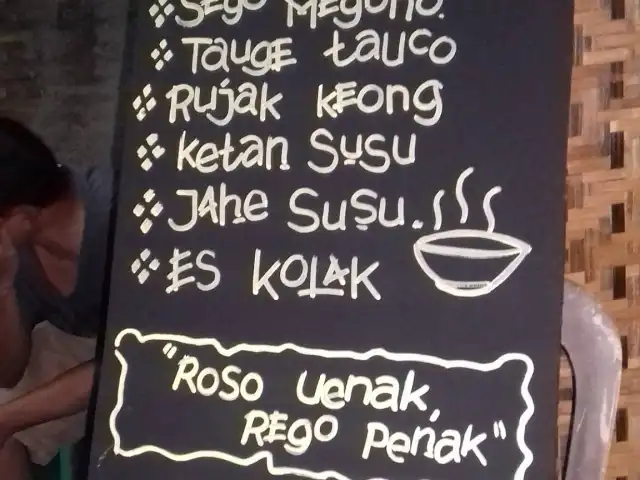 Sego Megono.
Tauge tauco
Rujak keong
ketan Susu
Jahe Susu.
Es Kolak
"Roso uenak,
Rego Penak"